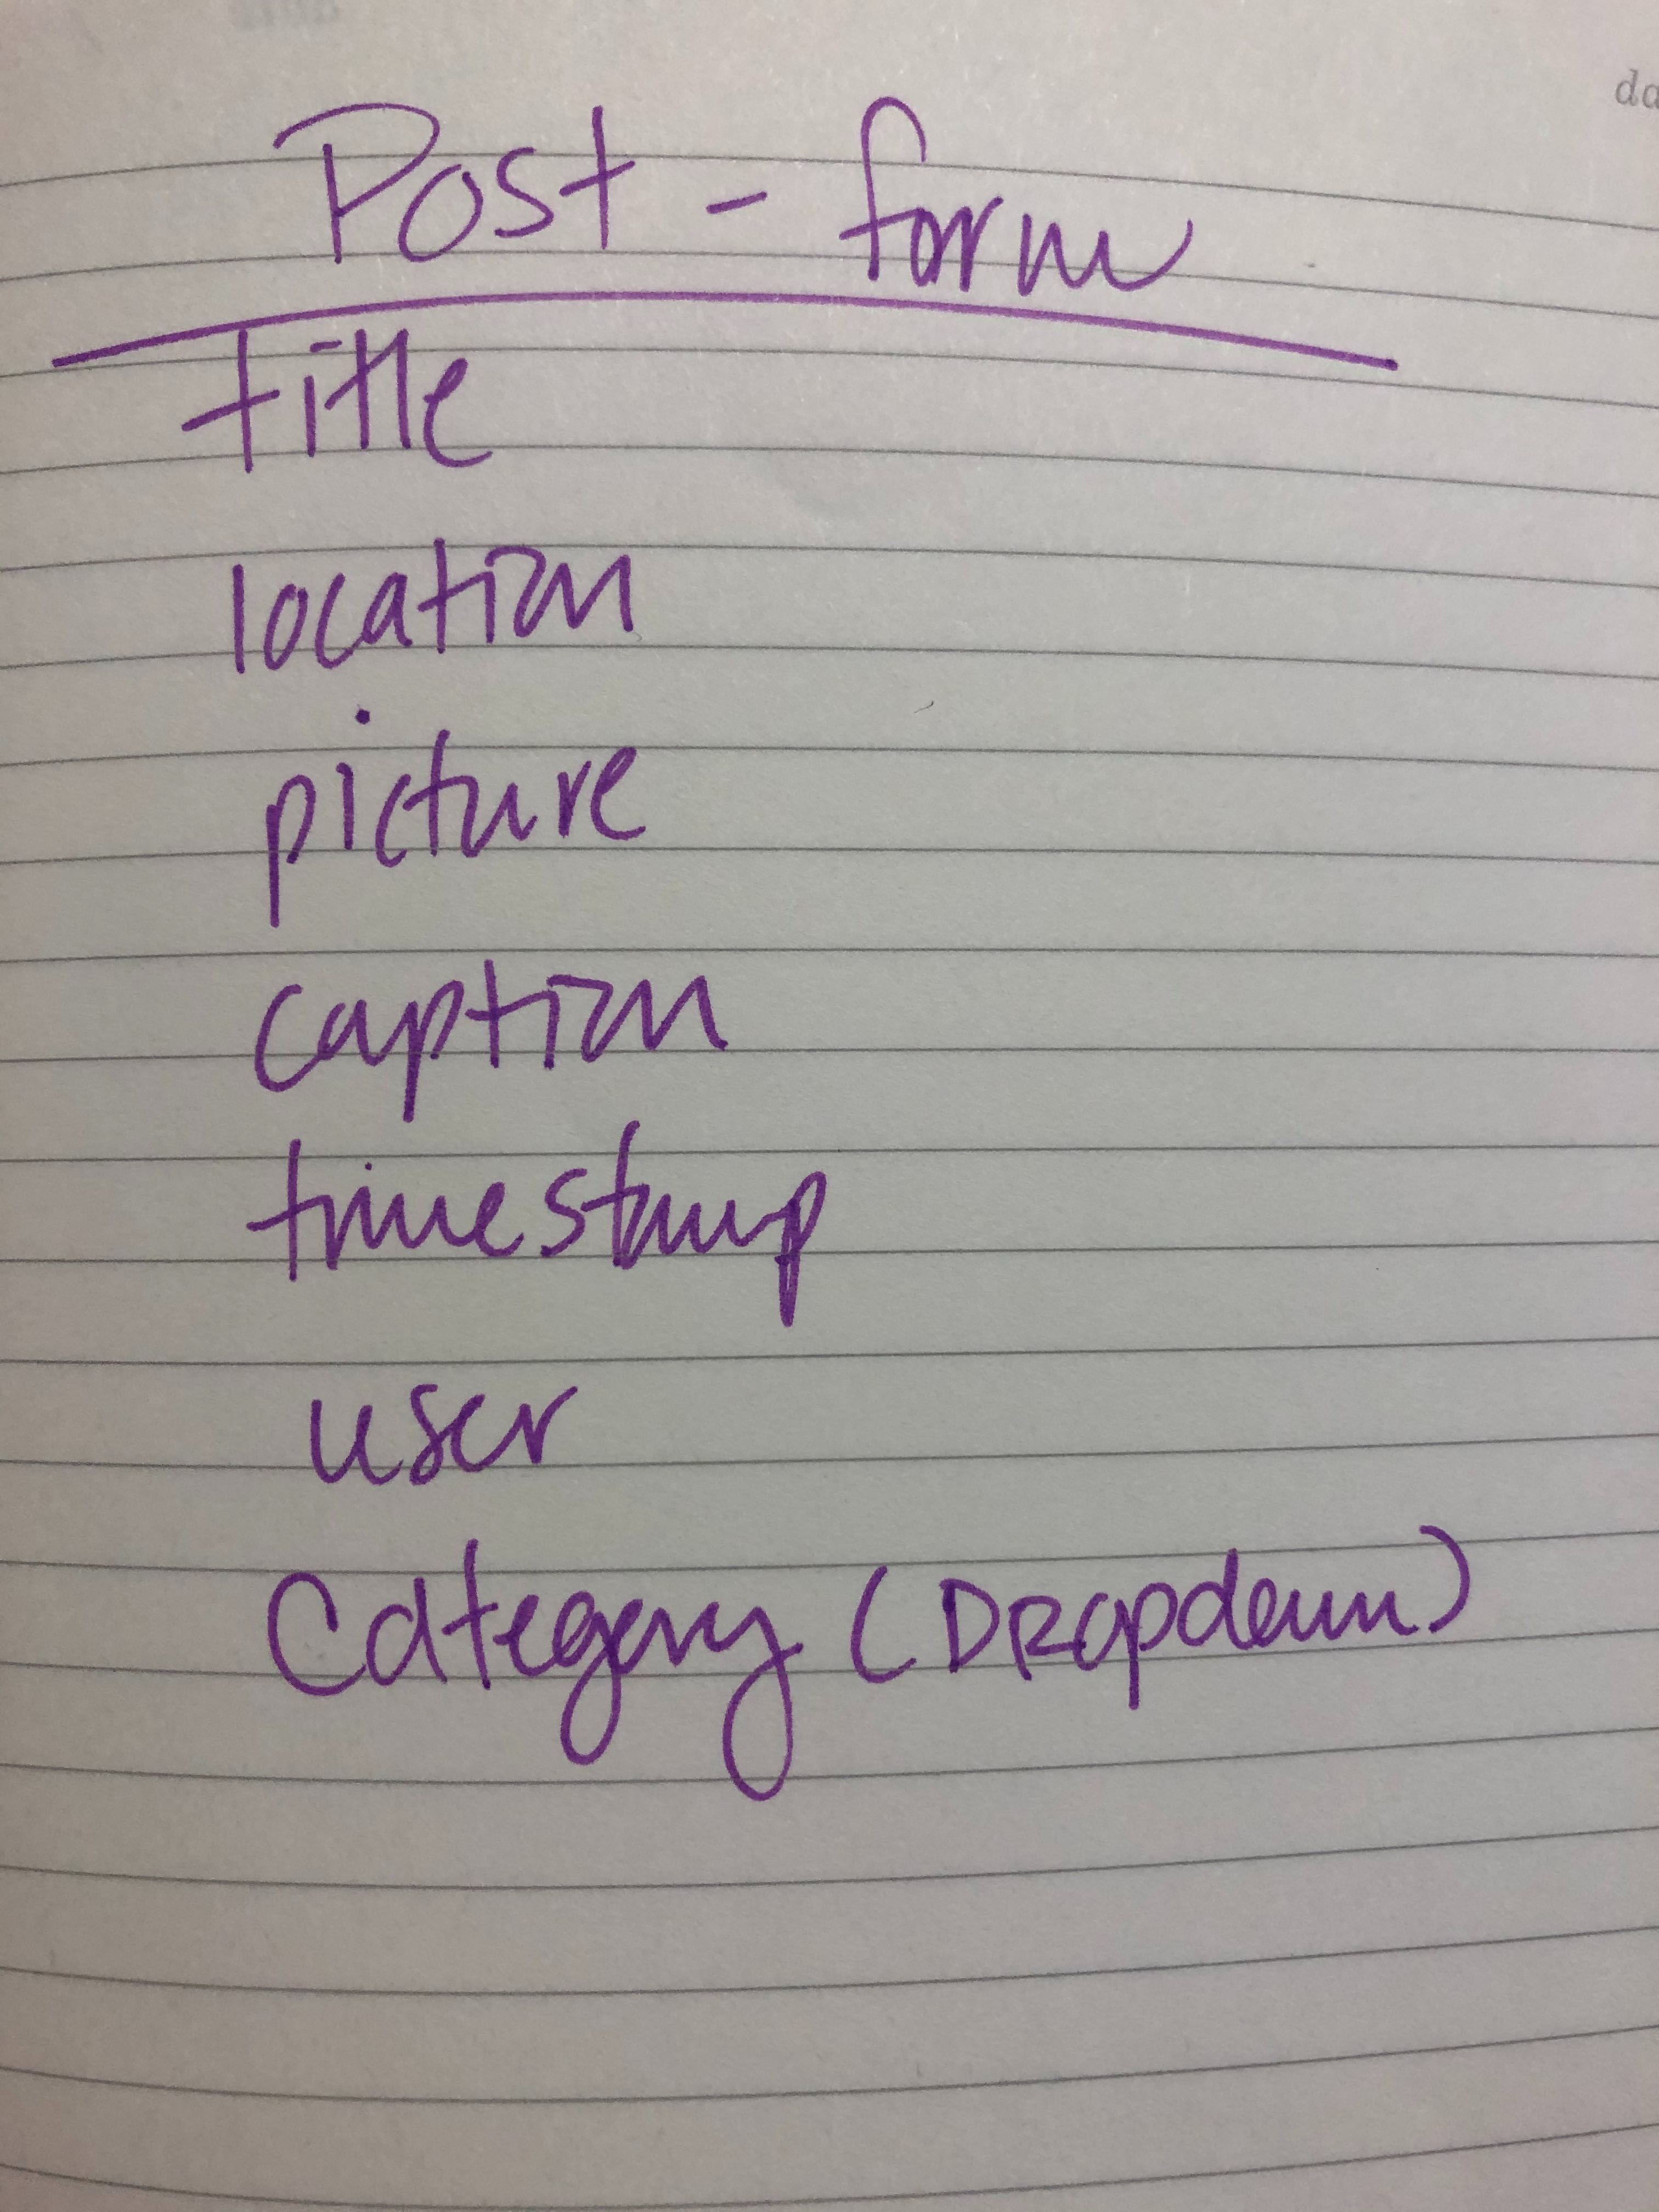 Post - form
title
location
picture
caption
timestamp
user
Category (DRopdown)